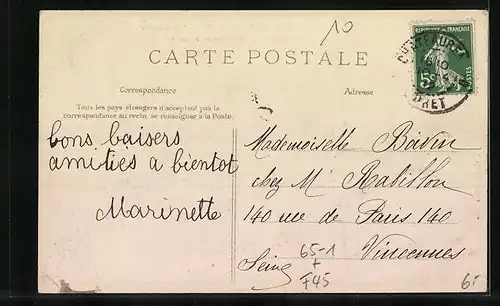 10
CARTE POSTALE
REPUBLIQUE FRANÇAISE
5
POSTES
Correspondance
Adresse
Tous les pays étrangers n'acceptent pas la
correspondance au recto, se renseigner à la Poste.
bons baisers
amitiés a bientot
Marinette
Mademoiselle Boivin
chez Mr Rabillon
140 rue de Paris 140
Vincennes
Seine
65-1
+
F45
6-